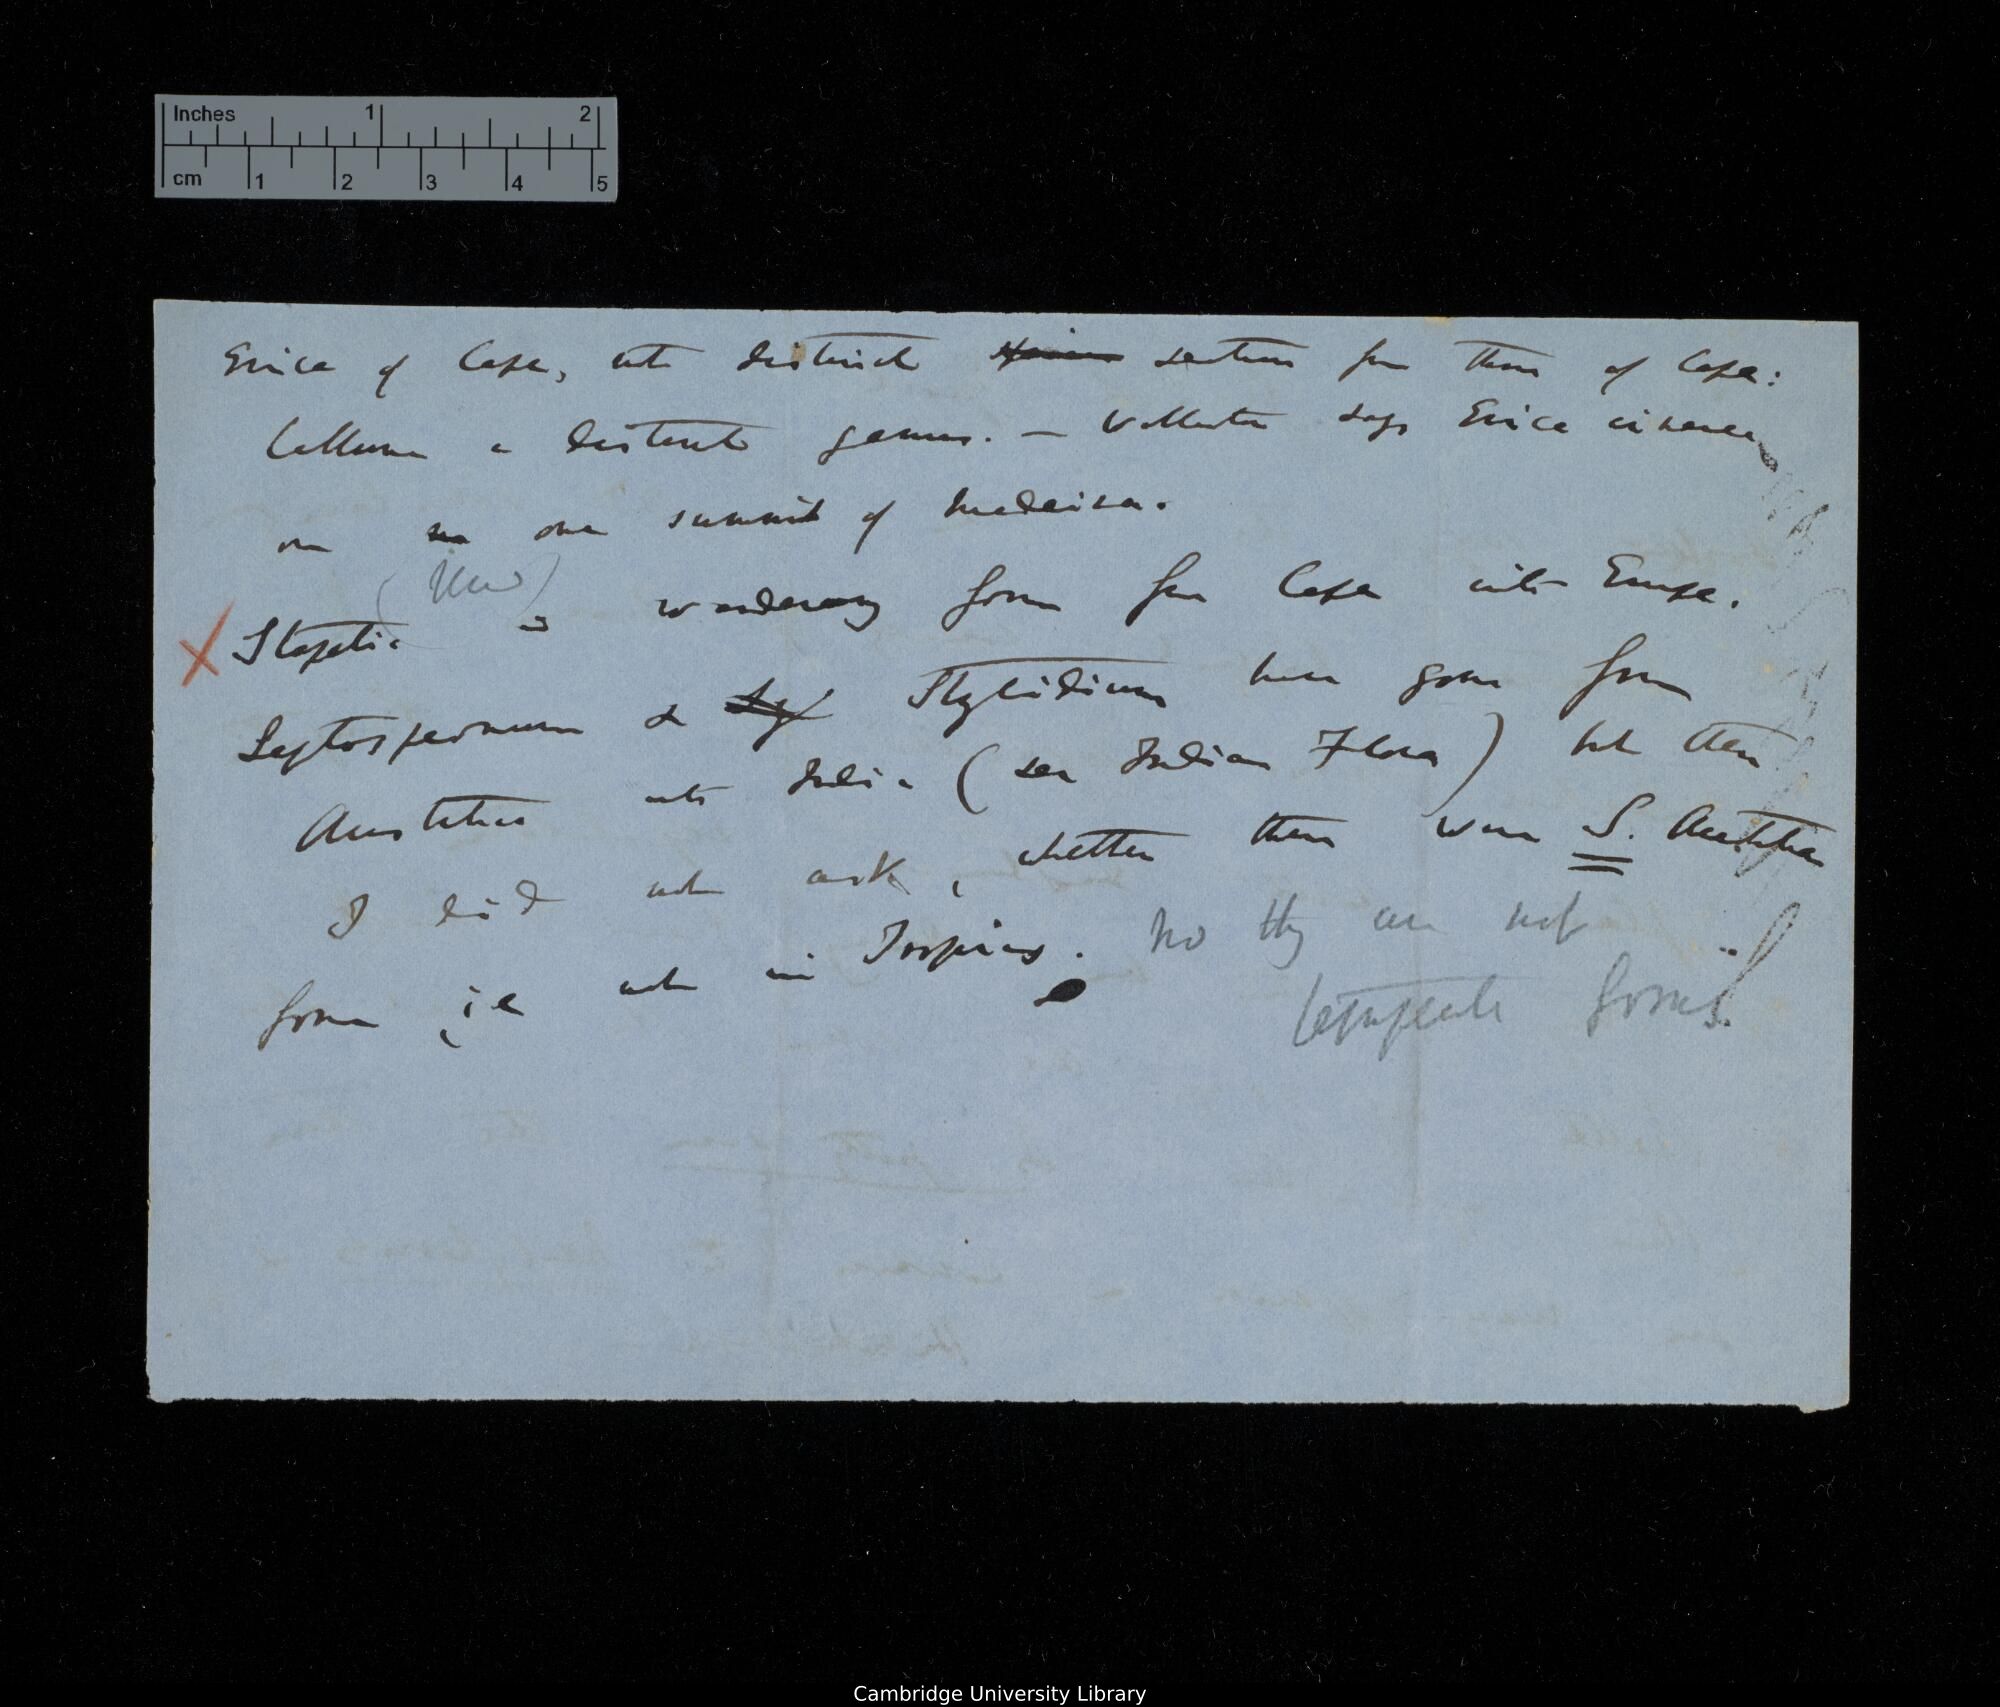 Inches 1 2
cm 1 2 3 4 5
Erica of Cape, not distinct sections from those of Cape:
Calluna a distinct genus. — Wollaston says Erica cinerea
on one summit of Madeira.
Stapelia is wandering form from Cape into Europe.
Leptospermum & Stylidium have gone from
Australia into India (see Indian Flora) but then
I did not ask, whether these were S. Australian
forms, ie not in Tropics. No they are not
temperate forms!
Cambridge University Library